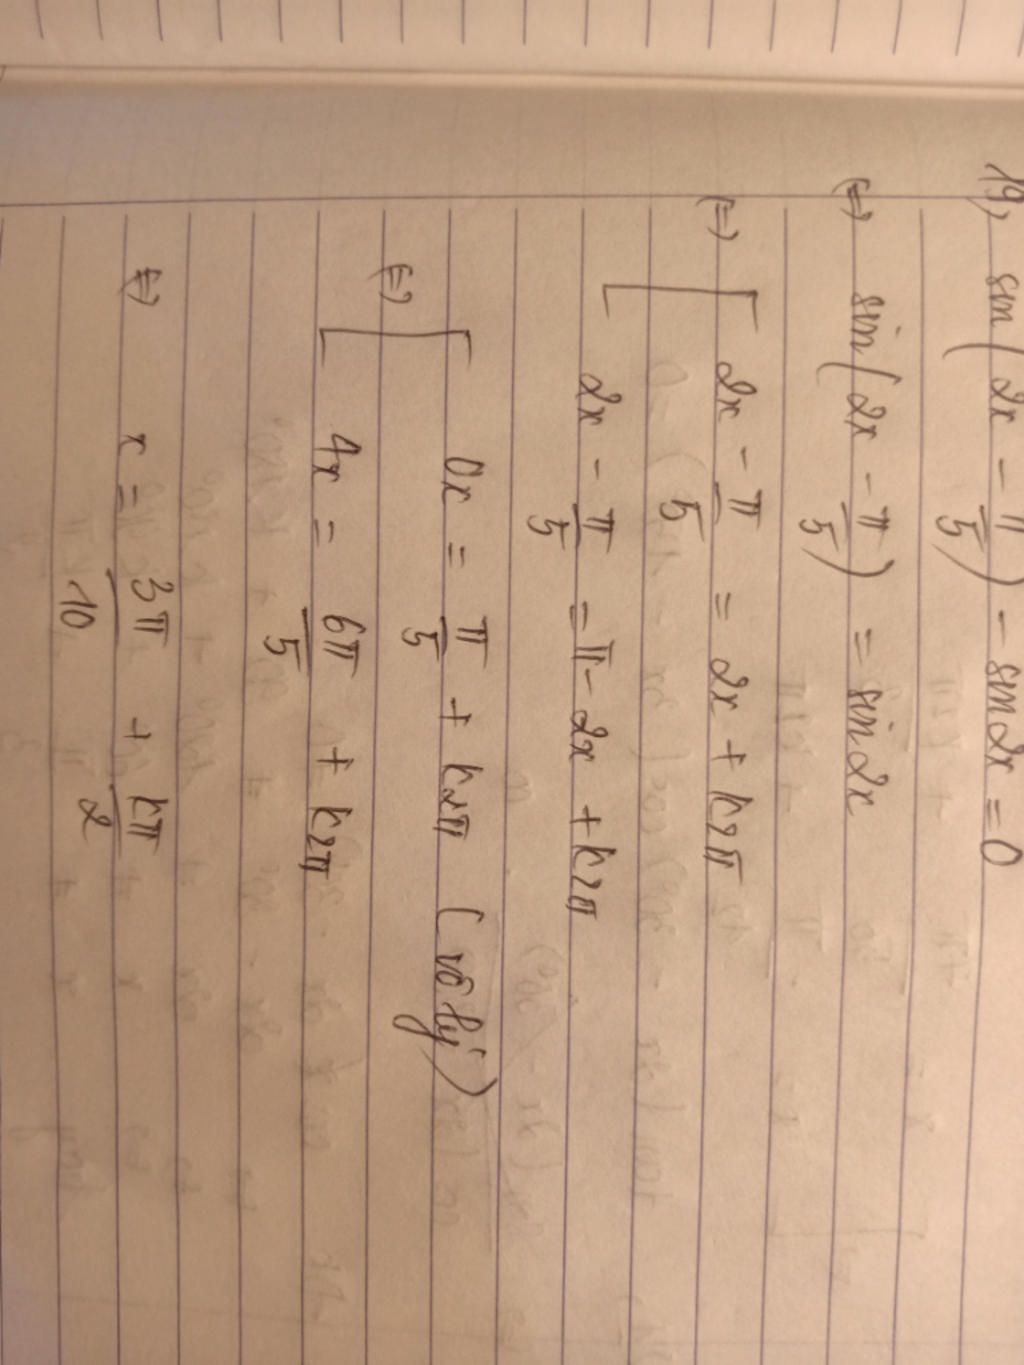 19, sin(2x - π/5) - sin2x = 0
(=) sin(2x - π/5) = sin2x
(=) [ 2x - π/5 = 2x + k2π
2x - π/5 = π - 2x + k2π
(=) [ 0x = π/5 + k2π (vô lý)
4x = 6π/5 + k2π
(=) x = 3π/10 + kπ/2